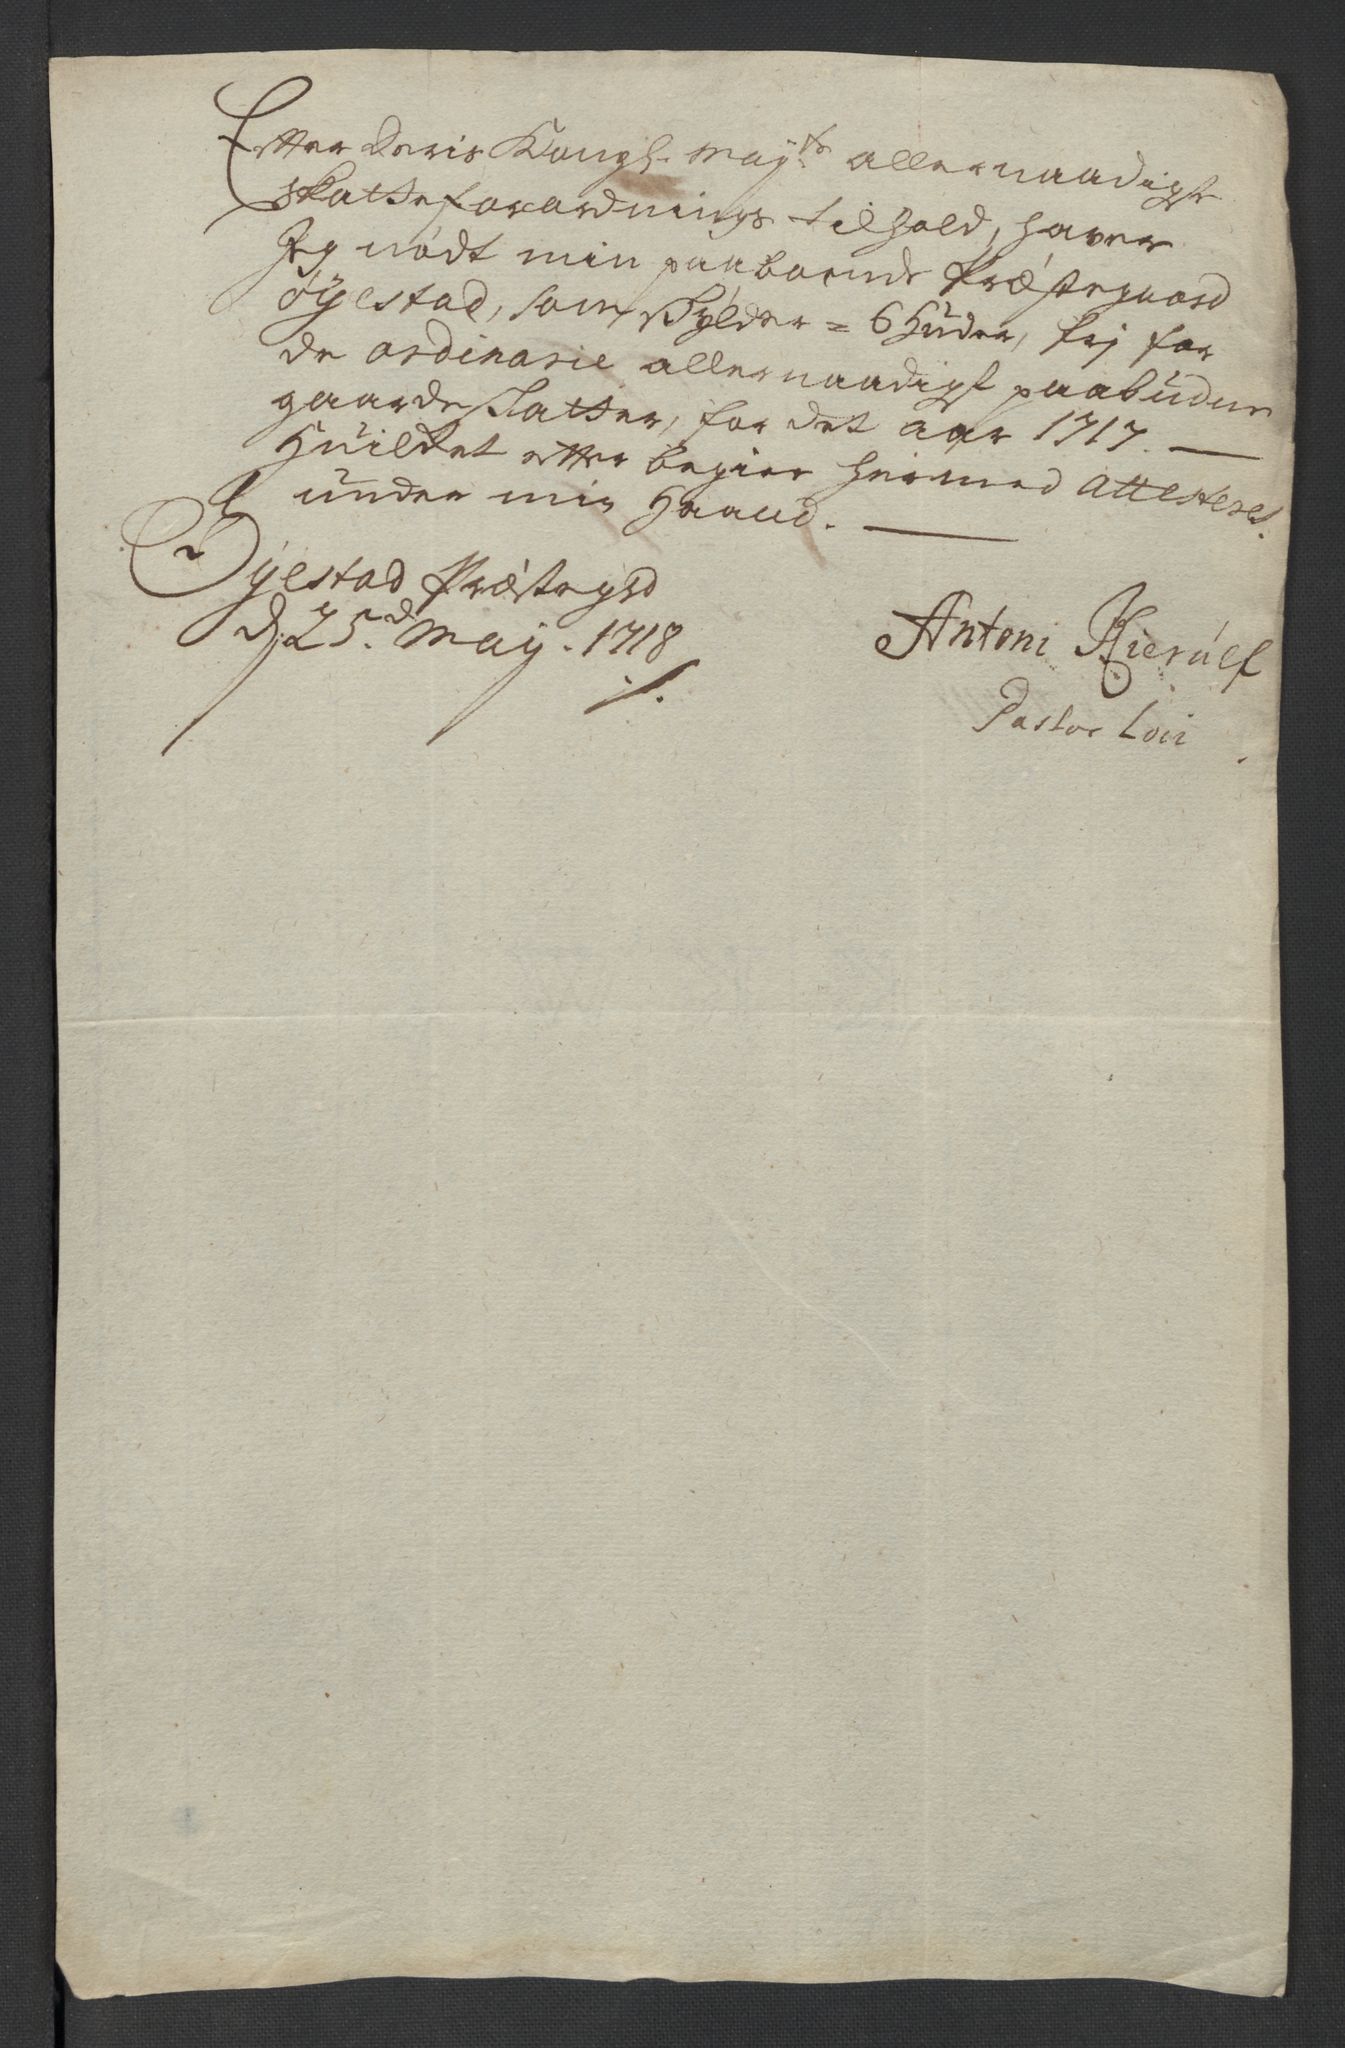 Etter deris Kongl. Mayts allernaadigste
Skatteforordnings tilhold, haver
Jeg nödt min paaboende Præstegaard
Öyestad, som skylder = 6 Huder, frj for
de ordinarie allernaadigst paabudne
gaarde skatter, for det aar 1717. —
Huilket etter begier hermed attesteres.
under min Haand. —
Öyestad Præstegrd
d. 25.d May. 1718
Antoni Kierulf
Pastor Loci